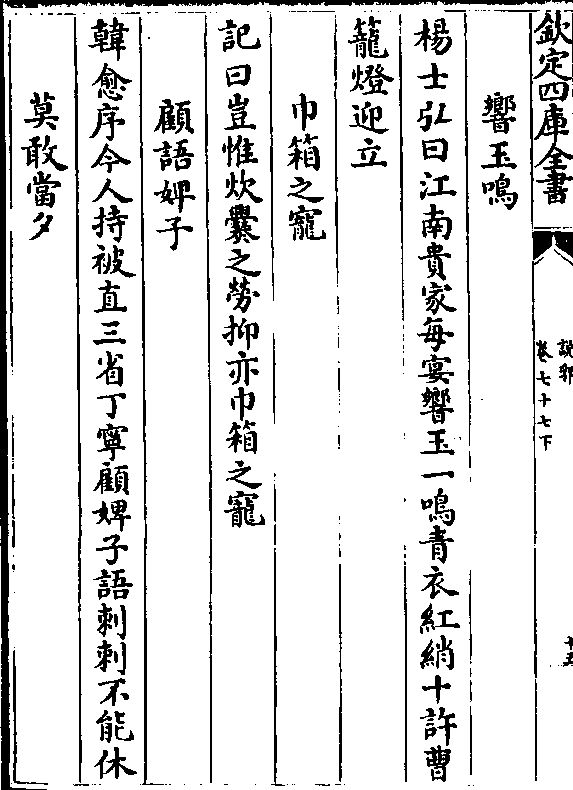 欽定四庫全書
説郛
卷七十七下
十五
響玉鳴
楊士弘曰江南貴家每宴響玉一鳴青衣紅綃十許曹
籠燈迎立
巾箱之寵
記曰豈惟炊爨之勞抑亦巾箱之寵
顧語婢子
韓愈序今人持被直三省丁寧顧婢子語刺刺不能休
莫敢當夕